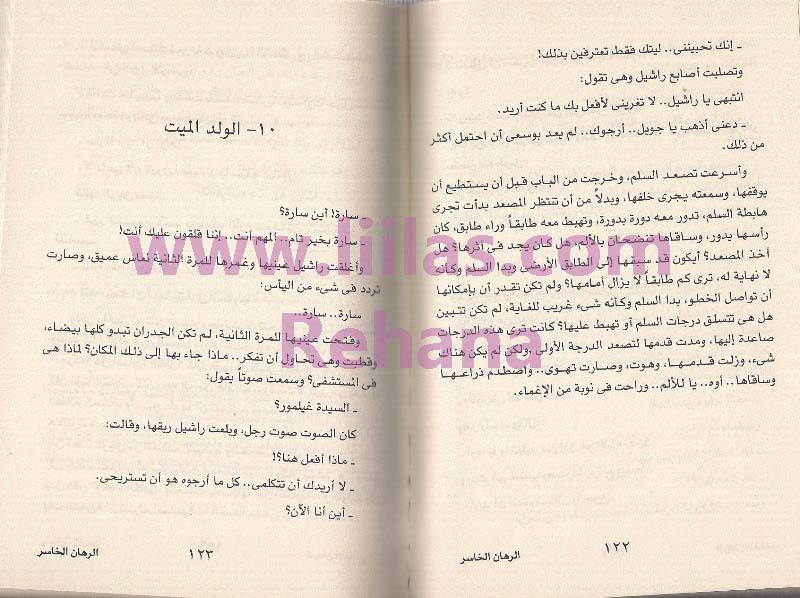 ـ إنك تحبيننى.. ليتك فقط تعترفين بذلك!
وتصلبت أصابع راشيل وهى تقول:
انتبهى يا راشيل.. لا تغرينى لأفعل بك ما كنت أريد.
ـ دعنى أذهب يا جويل.. أرجوك.. لم يعد بوسعى أن احتمل أكثر
من ذلك.
وأسرعت تصعد السلم، وخرجت من الباب قبل أن يستطيع أن
يوقفها، وسمعته يجرى خلفها، وبدلاً من أن تنتظر المصعد بدأت تجرى
هابطة السلم، تدور معه دورة بدورة، وتهبط معه طابقاً وراء طابق، كان
رأسها يدور، وساقاها تنضحان بالألم، هل كان يجد فى أثرها؟ هل
أخذ المصعد؟ أيكون قد سبقها إلى الطابق الأرضى وبدا السلم وكأنه
لا نهاية له، ترى كم طابقاً لا يزال أمامها؟ ولم تكن تقدر أن بإمكانها
أن تواصل الخطو، بدا السلم وكأنه شىء غريب للغاية، لم تكن تتبين
هل هى تتسلق درجات السلم أو تهبط عليها؟ كانت ترى هذه الدرجات
صاعدة إليها، ومدت قدمها لتصعد الدرجة الأولى، ولكن لم يكن هناك
شىء، وزلت قدمها، وهوت، وصارت تهوى.. واصطدم ذراعها
وساقاها.. أوه.. يا للألم.. وراحت فى نوبة من الإغماء.
١٢٢
الرهان الخاسر
١٠- الولد الميت
ـ سارة! أين سارة؟
ـ سارة بخير تام.. المهم أنت.. إننا قلقون عليك أنت!
وأغلقت راشيل عينيها وغمرها للمرة الثانية نعاس عميق، وصارت
تردد فى شىء من اليأس:
سارة.. سارة..
وفتحت عينيها للمرة الثانية، لم تكن الجدران تبدو كلها بيضاء،
وقطبت وهى تحاول أن تفكر.. ماذا جاء بها إلى ذلك المكان؟ لماذا هى
فى المستشفى؟ وسمعت صوتاً يقول:
ـ السيدة غيلمور؟
كان الصوت صوت رجل، وبلعت راشيل ريقها، وقالت:
ـ ماذا أفعل هنا؟!
ـ لا أريدك أن تتكلمى.. كل ما أرجوه هو أن تستريحى.
ـ أين أنا الآن؟
١٢٣
الرهان الخاسر
www.liilas.com
Rehana